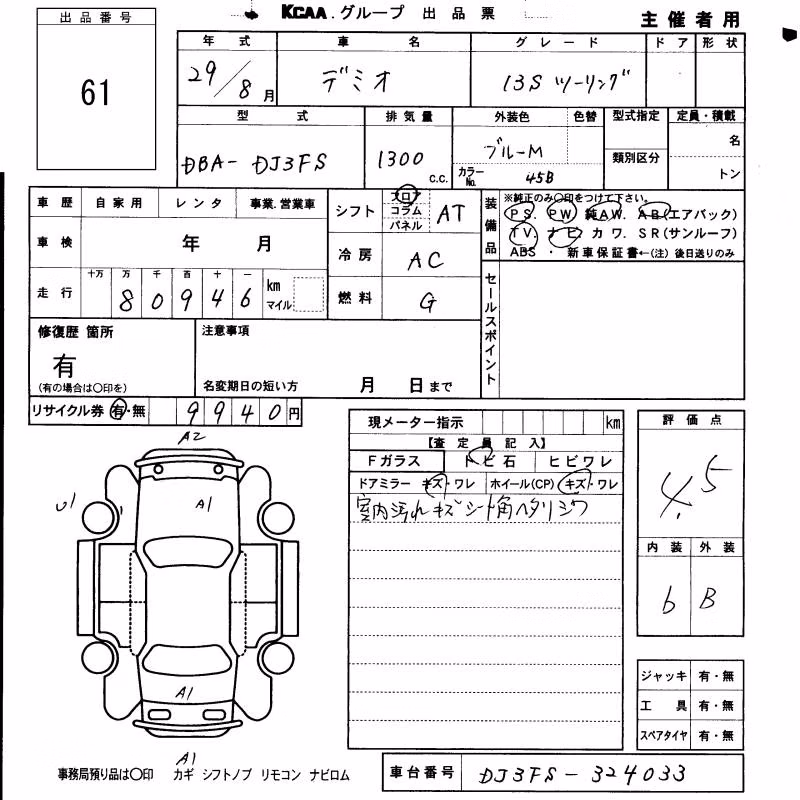 出品番号
61
KCAA.グループ 出品票
主催者用
年式 車名 グレード ドア 形状
29/8月 デミオ 13S ツーリング
型式 排気量 外装色 色替 型式指定 定員・積載
DBA-DJ3FS 1300 C.C. ブルーM 類別区分 名
カラーNo. 45B トン
車歴 自家用 レンタ 事業.営業車
車検 年 月
走行 十万 万 千 百 十 一
8 0 9 4 6 km マイル
シフト フロア コラム パネル AT
冷房 AC
燃料 G
装備品
※純正のみ○印をつけて下さい。
PS. PW 純AW. AB(エアバック)
TV ナビ カワ. SR(サンルーフ)
ABS ・ 新車保証書←(注) 後日送りのみ
セールスポイント
修復歴 箇所
有
(有の場合は○印を)
注意事項
名変期日の短い方 月 日まで
リサイクル券 有・無 9940円
A2
U1
A1
A1
A1
現メーター指示 km
【査定員記入】
Fガラス トビ石 ヒビワレ
ドアミラー キズ・ワレ ホイール(CP) キズ・ワレ
室内汚れ キズ シート角ヘタリ シワ
評価点
4.5
内装 外装
b B
ジャッキ 有・無
工具 有・無
スペアタイヤ 有・無
事務局預り品は○印 カギ シフトノブ リモコン ナビロム
車台番号 DJ3FS-324033